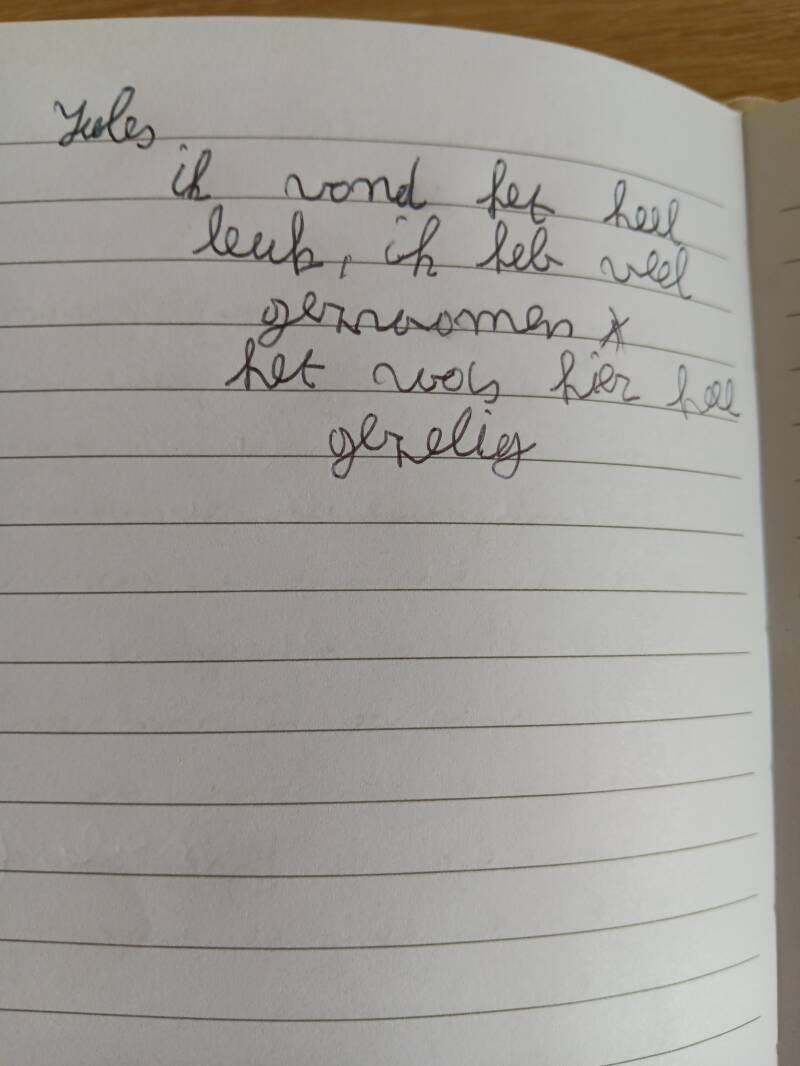 Jules
ik vond het heel
leuk, ik heb veel
gezwomen
het was hier heel
gezelig